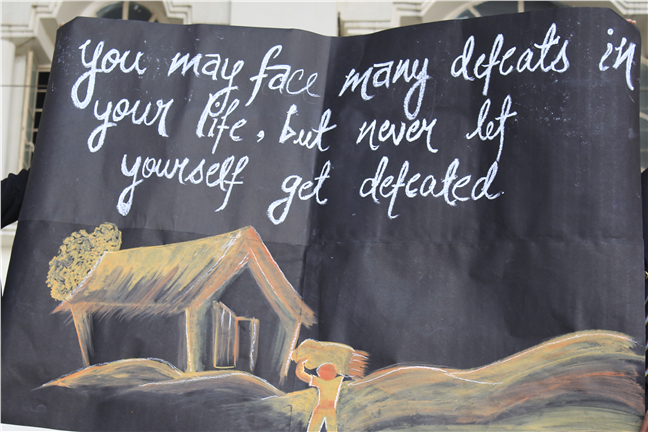 you may face many defeats in
your life, but never let
yourself get defeated